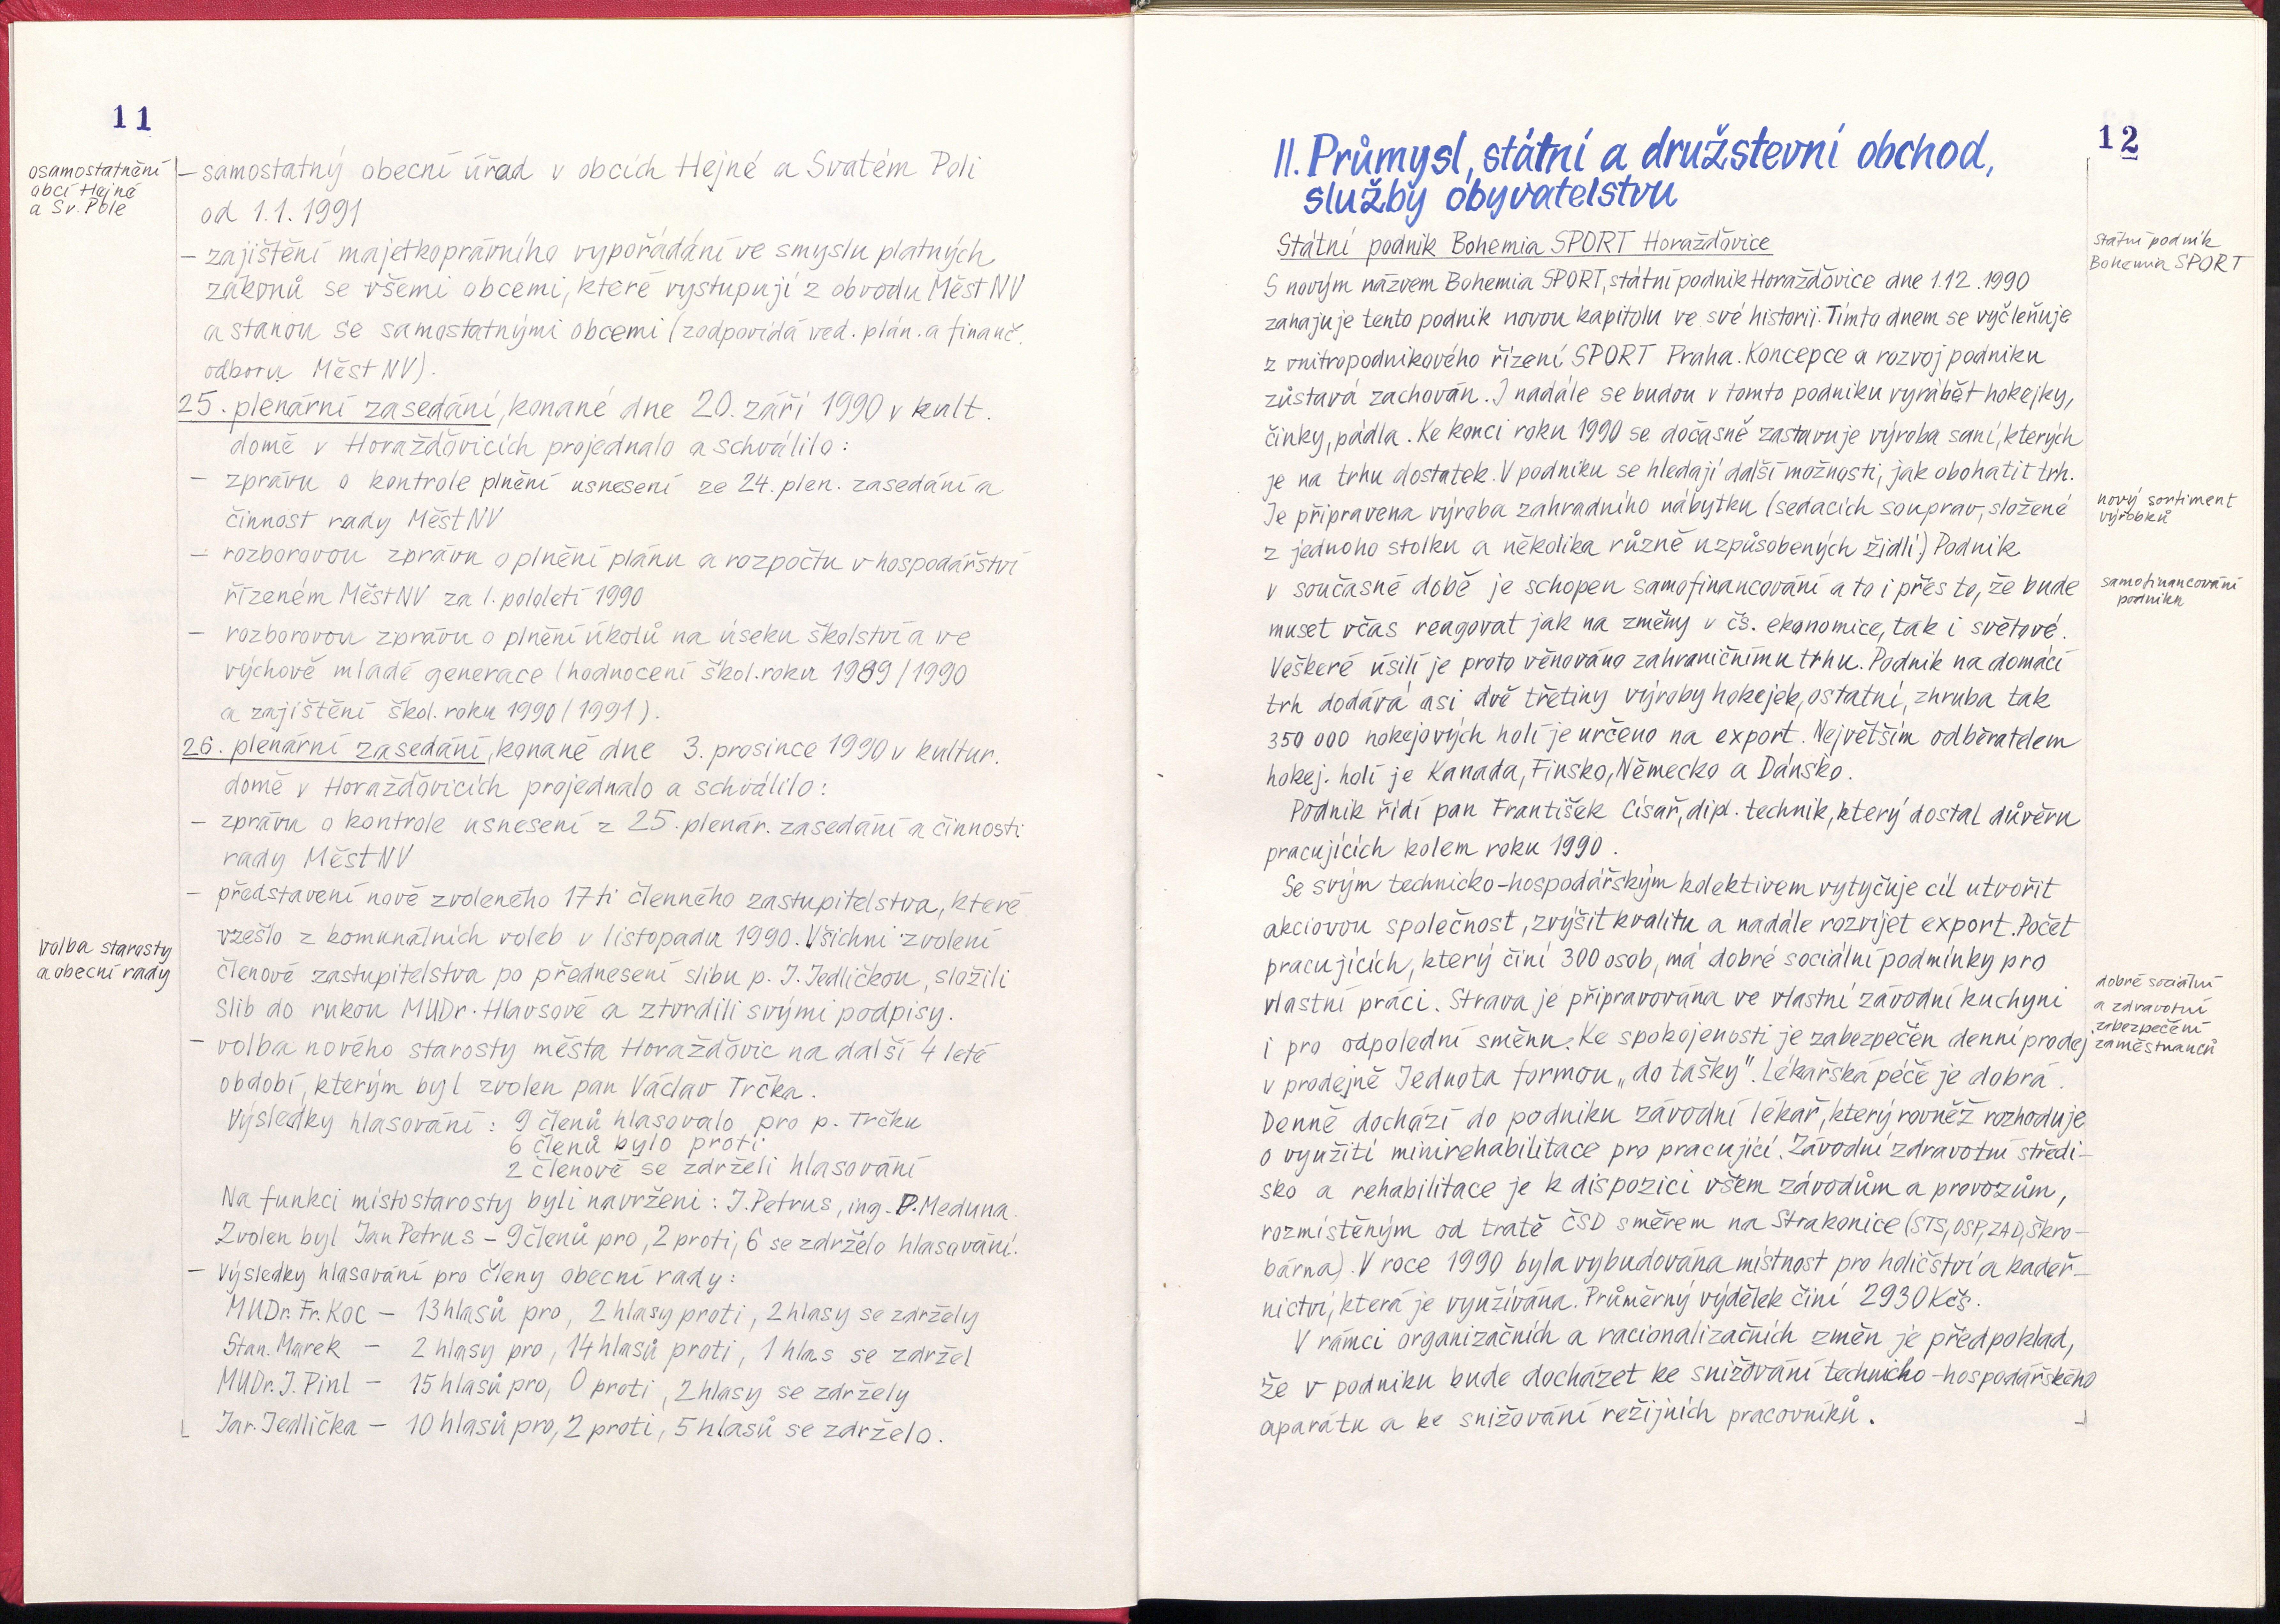 11
osamostatnění
obcí Hejné
a Sv. Pole
– samostatný obecní úřad v obcích Hejné a Svatém Poli
od 1.1. 1991
– zajištění majetkoprávního vypořádání ve smyslu platných
zákonů se všemi obcemi, které vystupují z obvodu Měst NV
a stanou se samostatnými obcemi (zodpovídá ved. plán. a finanč.
odboru Měst NV).
25. plenární zasedání, konané dne 20. září 1990 v kult.
domě v Horažďovicích projednalo a schválilo:
– zprávu o kontrole plnění usnesení ze 24. plen. zasedání a
činnost rady Měst NV
– rozborovou zprávu o plnění plánu a rozpočtu v hospodářství
řízeném Měst NV za 1. pololetí 1990
– rozborovou zprávu o plnění úkolů na úseku školství a ve
výchově mladé generace (hodnocení škol. roku 1989/1990
a zajištění škol. roku 1990/1991).
26. plenární zasedání, konané dne 3. prosince 1990 v kultur.
domě v Horažďovicích projednalo a schválilo:
– zprávu o kontrole usnesení z 25. plenár. zasedání a činnosti
rady Měst NV
– představení nově zvoleného 17ti členného zastupitelstva, které
vzešlo z komunálních voleb v listopadu 1990. Všichni zvolení
volba starosty
a obecní rady
členové zastupitelstva po přednesení slibu p. J. Jedličkou, složili
slib do rukou MUDr. Hlavsové a ztvrdili svými podpisy.
– volba nového starosty města Horažďovic na další 4 leté
období, kterým byl zvolen pan Václav Trčka.
Výsledky hlasování: 9 členů hlasovalo pro p. Trčku
6 členů bylo proti
2 členové se zdrželi hlasování
Na funkci místostarosty byli navrženi: J. Petrus, ing. P. Meduna.
Zvolen byl Jan Petrus – 9 členů pro, 2 proti, 6 se zdrželo hlasování.
– Výsledky hlasování pro členy obecní rady:
MUDr. Fr. Koc – 13 hlasů pro, 2 hlasy proti, 2 hlasy se zdržely
Stan. Marek – 2 hlasy pro, 14 hlasů proti, 1 hlas se zdržel
MUDr. J. Pinl – 15 hlasů pro, 0 proti, 2 hlasy se zdržely
Jar. Jedlička – 10 hlasů pro, 2 proti, 5 hlasů se zdrželo.
12
II. Průmysl, státní a družstevní obchod,
služby obyvatelstvu
Státní podnik Bohemia SPORT Horažďovice
státní podnik
Bohemia SPORT
S novým názvem Bohemia SPORT, státní podnik Horažďovice dne 1.12.1990
zahajuje tento podnik novou kapitolu ve své historii. Tímto dnem se vyčleňuje
z vnitropodnikového řízení SPORT Praha. Koncepce a rozvoj podniku
zůstává zachován. I nadále se budou v tomto podniku vyrábět hokejky,
činky, pádla. Ke konci roku 1990 se dočasně zastavuje výroba saní, kterých
je na trhu dostatek. V podniku se hledají další možnosti, jak obohatit trh.
nový sortiment
výrobků
Je připravena výroba zahradního nábytku (sedacích souprav, složené
z jednoho stolku a několika různě uzpůsobených židlí). Podnik
samofinancování
podniku
v současné době je schopen samofinancování a to i přes to, že bude
muset včas reagovat jak na změny v čs. ekonomice, tak i světové.
Veškeré úsilí je proto věnováno zahraničnímu trhu. Podnik na domácí
trh dodává asi dvě třetiny výroby hokejek, ostatní, zhruba tak
350 000 hokejových holí je určeno na export. Největším odběratelem
hokej. holí je Kanada, Finsko, Německo a Dánsko.
Podnik řídí pan František Císař, dipl. technik, který dostal důvěru
pracujících kolem roku 1990.
Se svým technicko-hospodářským kolektivem vytyčuje cíl utvořit
akciovou společnost, zvýšit kvalitu a nadále rozvíjet export. Počet
pracujících, který činí 300 osob, má dobré sociální podmínky pro
dobré sociální
a zdravotní
zabezpečení
zaměstnanců
vlastní práci. Strava je připravována ve vlastní závodní kuchyni
i pro odpolední směnu. Ke spokojenosti je zabezpečen denní prodej
v prodejně Jednota formou „do tašky". Lékařská péče je dobrá.
Denně dochází do podniku závodní lékař, který rovněž rozhoduje
o využití minirehabilitace pro pracující. Závodní zdravotní středi–
sko a rehabilitace je k dispozici všem závodům a provozům,
rozmístěným od tratě ČSD směrem na Strakonice (STS, OSP, ZAD, Škro–
bárna). V roce 1990 byla vybudována místnost pro holičství a kadeř–
nictví, která je využívána. Průměrný výdělek činí 2930 Kčs.
V rámci organizačních a racionalizačních změn je předpoklad,
že v podniku bude docházet ke snižování technicko-hospodářského
aparátu a ke snižování režijních pracovníků.